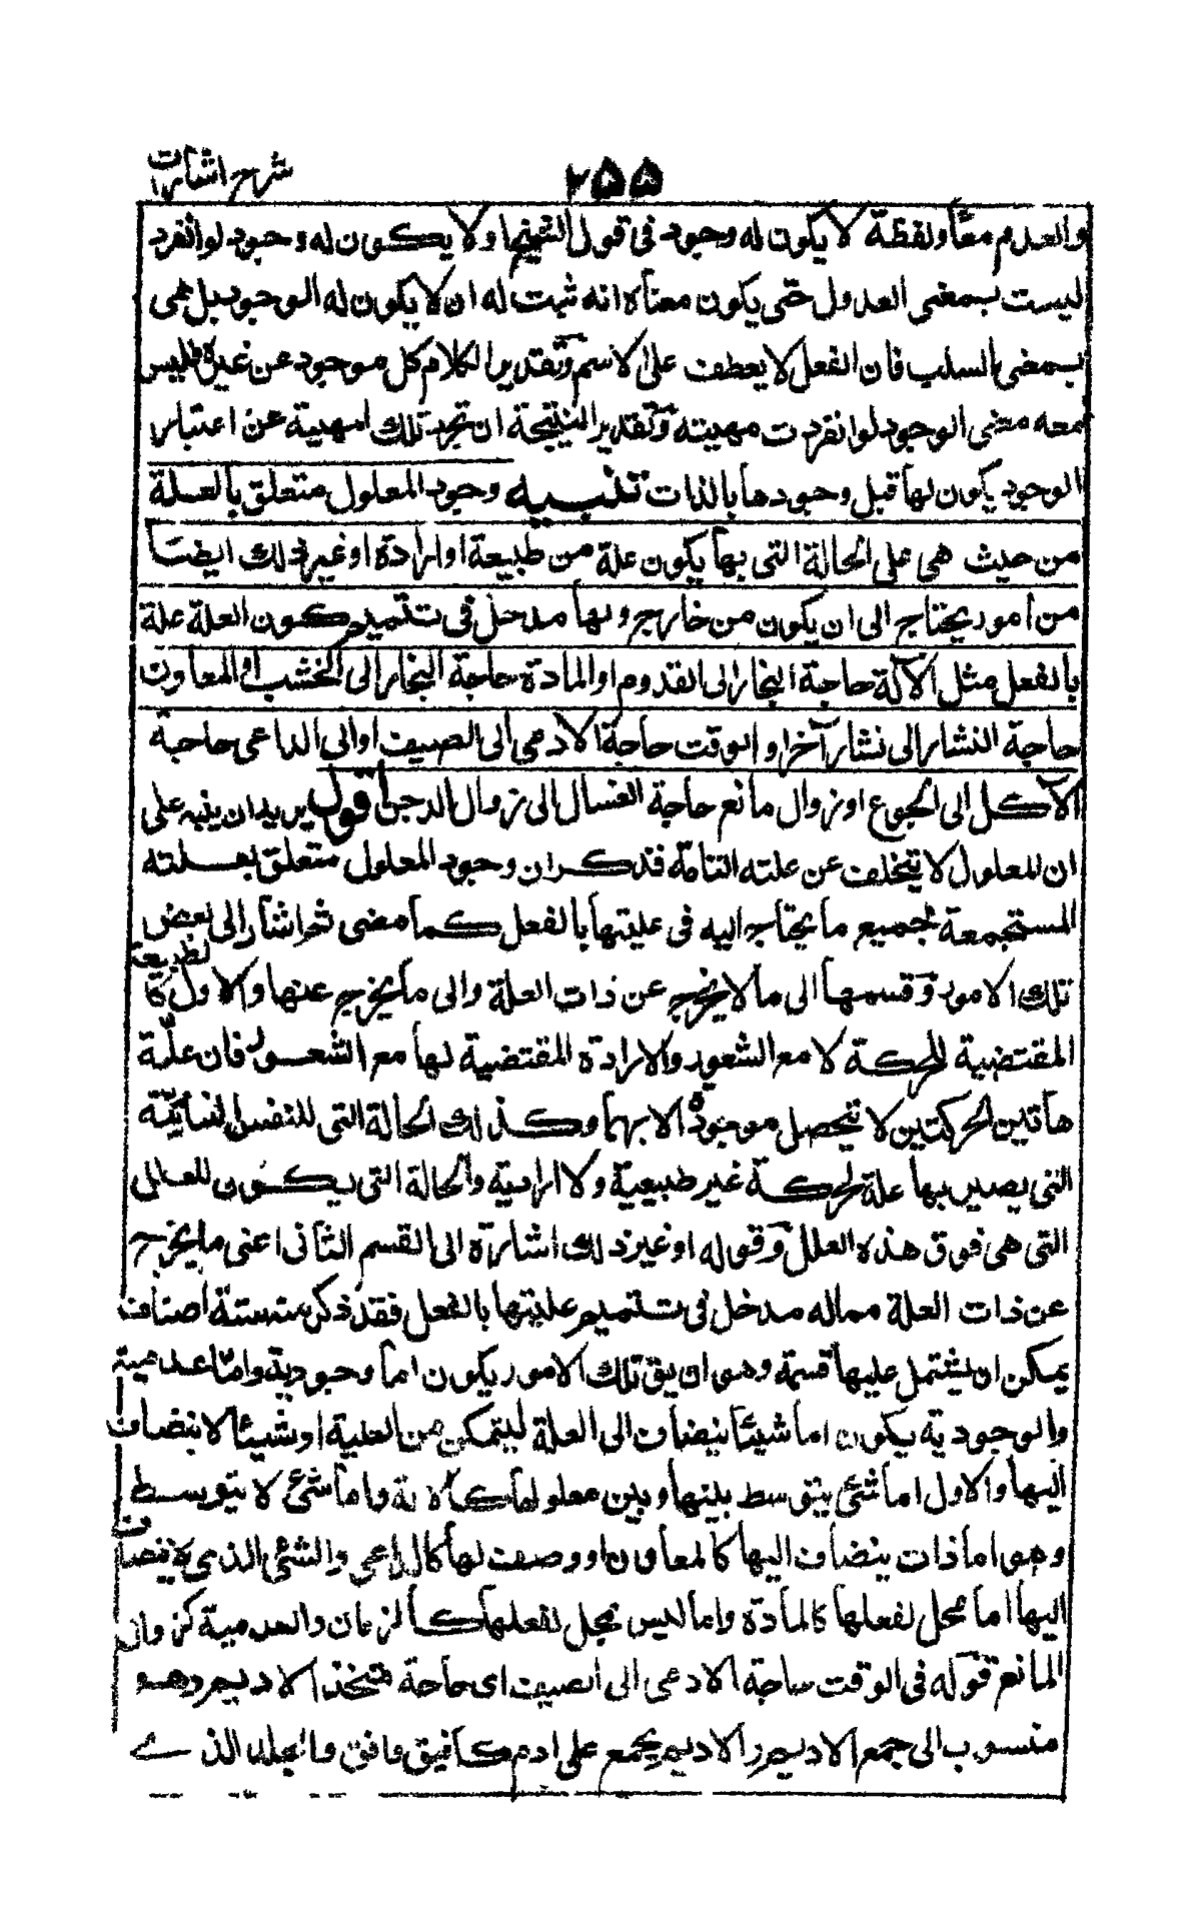 شرح اشارات
٢٥٥
والعدم معًا ولفظة لا يكون له وجود فى قول الشيخ اولا يكون له وجود لو انفرد
ليست بمعنى العدول حتى يكون معناه انه ثبت له ان لا يكون له الوجود بل هى
بمعنى السلب فان الفعل لا يعطف على الاسم وتقدير الكلام كل موجود عن غيره فليس
معه معنى الوجود لو انفردت مهيته وتقدير النتيجة ان تجرد تلك المهية عن اعتبار
الوجود يكون لها قبل وجودها بالذات تنبيه وجود المعلول متعلق بالعلة
من حيث هى على الحالة التى بها يكون علة من طبيعة او ارادة او غير ذلك ايضًا
من امور يحتاج الى ان يكون من خارج ولها مدخل فى تتميم كون العلة علة
بالفعل مثل الآلة حاجة النجار الى القدوم او المادة حاجة النجار الى الخشب او المعاون
حاجة النشار الى نشار آخر او الوقت حاجة الادمى الى الصيف او الى الداعى حاجة
الآكل الى الجوع او زوال مانع حاجة الغسال الى زوال الدجن اقول يريد ان ينبه على
ان المعلول لا يتخلف عن علته التامة فذكر ان وجود المعلول متعلق بعلته
المستجمعة لجميع ما يحتاج اليه فى عليتها بالفعل كما مضى ثم اشار الى بعض
تلك الامور وقسمها الى ما لا يخرج عن ذات العلة والى ما يخرج عنها والاول كالطبيعة
المقتضية للحركة لا مع الشعور والارادة المقتضية لها مع الشعور فان علّة
هاتين الحركتين لا تتحصل موجودة الا بهما وكذلك الحالة التى للنفس النباتية
التى يصير بها علة لحركة غير طبيعية ولا ارادية والحالة التى يكون للعالى
التى هى فوق هذه العلل وقوله او غير ذلك اشارة الى القسم الثانى اعنى ما يخرج
عن ذات العلة مما له مدخل فى تتميم عليتها بالفعل فقد ذكر ستة اصناف
يمكن ان يشتمل عليها قسمة وهو ان يق تلك الامور يكون اما وجودية واما عدمية
والوجودية يكون اما شيئا ينضاف الى العلة ليتمكن من العلية او شيئا لا ينضاف
اليها والاول اما شئ يتوسط بينها وبين معلولها كالآلة واما شئ لا يتوسط
وهو اما ذات ينضاف اليها كالمعاون او وصف لها كالداعى والشئ الذى لا ينضاف
اليها اما محل لفعلها كالمادة واما ليس بمحل لفعلها كالزمان والعدمية كزوال
المانع قوله فى الوقت حاجة الادمى الى الصيف اى حاجة متخذ الاديم وهو
منسوب الى جمع الاديم والاديم يجمع على ادم كافيق وافق والجلد الذى